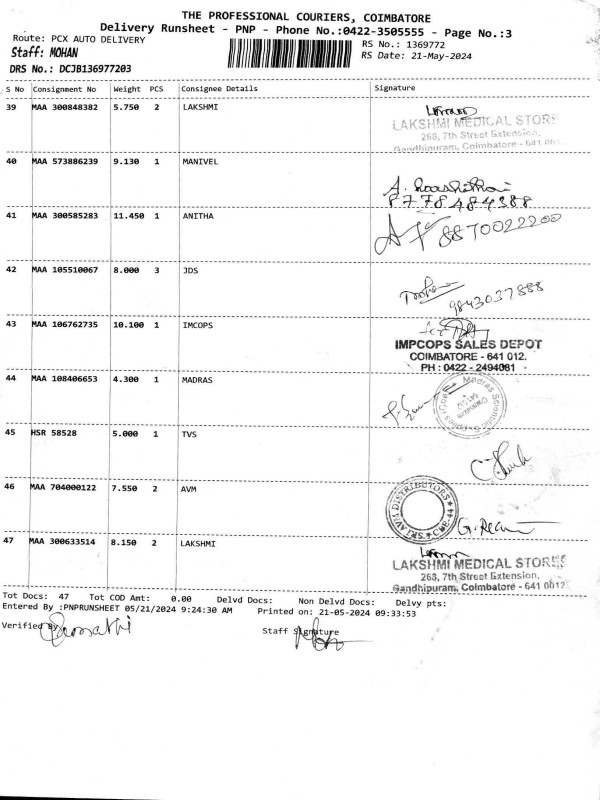 THE PROFESSIONAL COURIERS, COIMBATORE
Delivery Runsheet - PNP - Phone No.:0422-3505555 - Page No.:3
Route: PCX AUTO DELIVERY
RS No.: 1369772
Staff: MOHAN
RS Date: 21-May-2024
DRS No.: DCJB136977203
S No Consignment No Weight PCS Consignee Details Signature
39 MAA 300848382 5.750 2 LAKSHMI
LAKSHMI MEDICAL STORE
268, 7th Street Extension,
Gandhipuram, Coimbatore - 641 0
40 MAA 573886239 9.130 1 MANIVEL
8778484388
41 MAA 300585283 11.450 1 ANITHA
8870022200
42 MAA 105510067 8.000 3 JDS
9843037888
43 MAA 106762735 10.100 1 IMCOPS
IMPCOPS SALES DEPOT
COIMBATORE - 641 012.
PH : 0422 - 2494081
44 MAA 108406653 4.300 1 MADRAS
Madras Scientific
45 HSR 58528 5.000 1 TVS
46 MAA 704000122 7.550 2 AVM
DISTRIBUTORS
47 MAA 300633514 8.150 2 LAKSHMI
LAKSHMI MEDICAL STORES
268, 7th Street Extension,
Gandhipuram, Coimbatore - 641 012
Tot Docs: 47 Tot COD Amt: 0.00 Delvd Docs: Non Delvd Docs: Delvy pts:
Entered By :PNPRUNSHEET 05/21/2024 9:24:30 AM Printed on: 21-05-2024 09:33:53
Verified By
Staff Signature